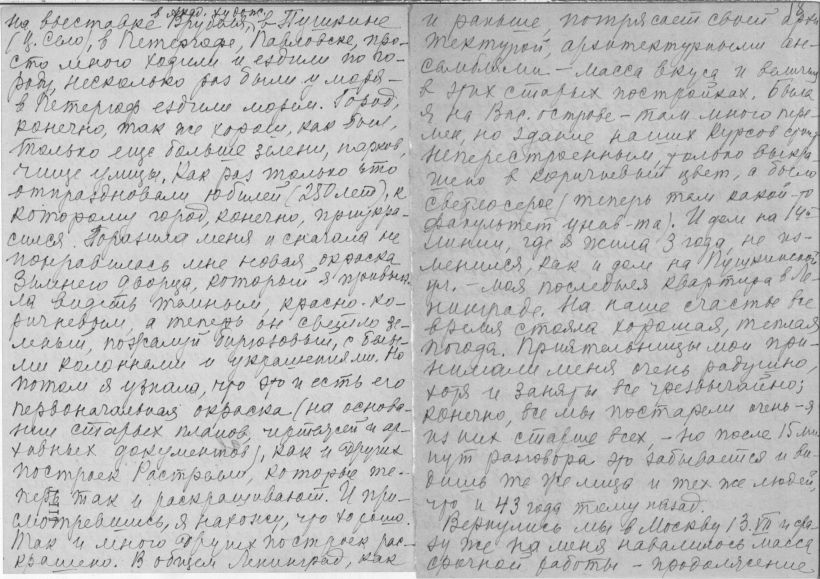 в Акад. худож.
на выставке Врубеля, в Пушкине
(Ц. Село), в Петергофе, Павловске, про-
сто много ходили и ездили по го-
роду, несколько раз были у моря –
в Петергоф ездили морем. Город,
конечно, так же хорош, как был,
только еще больше зелени, парков,
чище улицы. Как раз только что
отпраздновали юбилей (250 лет), к
которому город, конечно, приукра-
сился. Поразила меня и сначала не
понравилась мне новая окраска
Зимнего дворца, который я привык-
ла видеть темным, красно-ко-
ричневым, а теперь он светло зе-
леный, пожалуй бирюзовый, с белы-
ми колоннами и украшениями. Но
потом я узнала, что это и есть его
первоначальная окраска (на основа-
нии старых планов, чертежей и ар-
хивных документов), как и других
построек Растрелли, которые те-
перь так и раскрашивают. И при-
смотревшись, я нахожу, что хорошо.
Так и много других построек рас-
крашено. В общем Ленинград, как
и раньше, потрясает своей архи
тектурой, архитектурными ан-
самблями – масса вкуса и величия
в этих старых постройках. Была
я на Вас. острове – там много пере-
мен, но здание наших Курсов стоит
неперестроенным, только выкра-
шено в коричневый цвет, а было
светлосерое (теперь там какой-то
факультет унив-та). И дом на 14й
линии, где я жила 3 года, не из-
менился, как и дом на Пушкинской
ул. – моя последняя квартира в Ле-
нинграде. На наше счастье все
время стояла хорошая, теплая
погода. Приятельницы мои при-
нимали меня очень радушно,
хотя и заняты все чрезвычайно;
конечно, все мы постарели очень – я
из них старше всех, – но после 15 ми
нут разговора это забывается и ви-
дишь те же лица и тех же людей,
что и 43 года тому назад.
Вернулись мы в Москву 13.VII и сра-
зу же на меня навалилось масса
срочной работы – продолжение